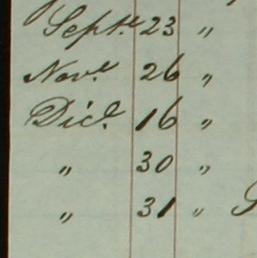 Septe. 23 "
Nove. 26 "
Dice. 16 "
" 30 "
" 31 "